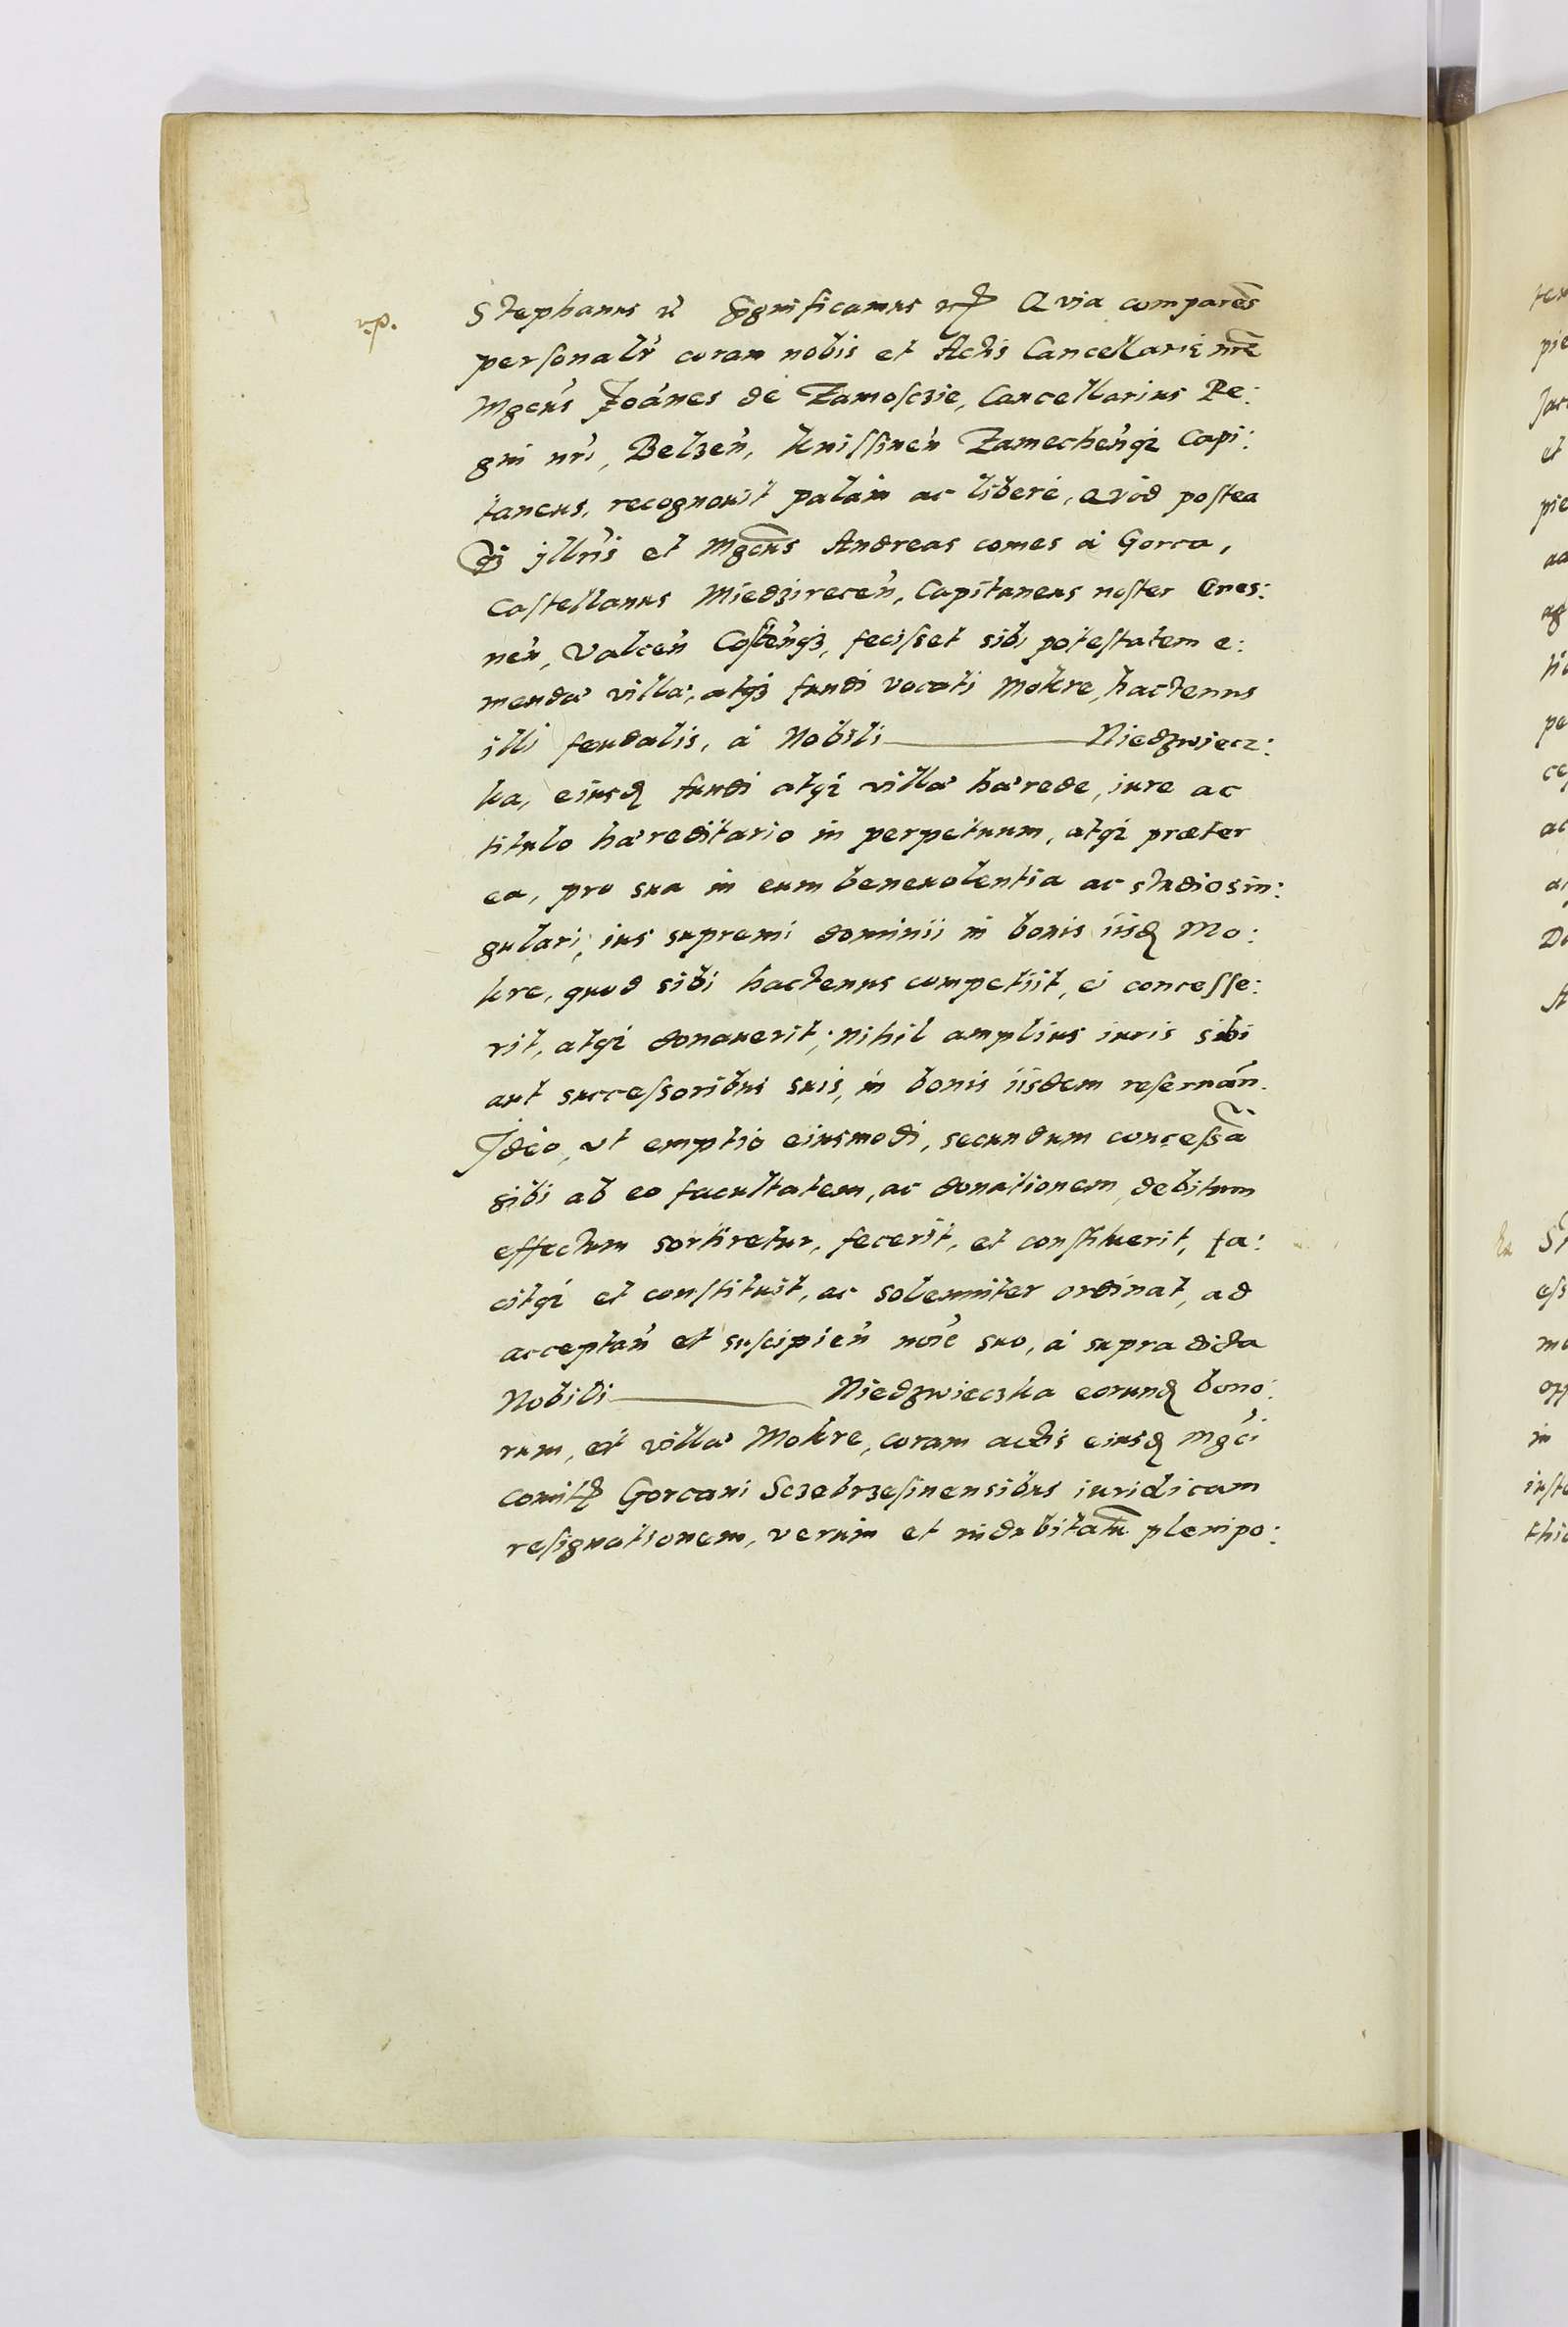 v.p.
Stephanus etc̃ Significamus etc̃ Quia comparẽs
personalr̃ coram nobis et Actis Cancellarię nrẽ
Mgcus Joãnes de Zamosczie, Cancellarius Re:
gni nrĩ, Belzeñ, Knissineñ Zamecheñqz Capi:
taneus, recognouit palàm ac liberè, Quòd postea
qz yllr̃is et Mgcus Andreas comes à Gorca,
Castellanus Miedzireceñ, Capitaneus noster Gnes:
neñ, Valceñ Costeñqz, fecisset sibi potestatem e:
mendæ villæ, atqz fundi vocati Mokre, hactenus
illi feudalis, à Nobili ——— Niedzwiecz:
ka, eiusđ fundi atqz villæ hærede, iure ac
titulo hæreditario in perpetuum, atqz præter
ea, pro sua in eum beneuolentia ac studio sin:
gulari, ius supremi dominii in bonis iisđ Mo:
kre, quod sibi hactenus competiit, ei concesse:
rit, atqz donauerit; nihil amplius iuris sibi
aut successoribus suis, in bonis iisdem reseruañ.
Ideo, vt emptio eiusmodi, secundum concessã
sibi ab eo facultatem, ac donationem, debitum
effectum sortiretur, fecerit, et constituerit, fa:
citqz et constituit, ac solenniter ordinat, ad
acceptañ et suscipieñ noĩe suo, à supra dicta
Nobili ——— Niedzwieczka eorunđ bono:
rum, et villæ Mokre, coram actis eiusđ mgcĩ
comit̃ Gorcani Sczebrzesinensibus iuridicam
resignationem, verum et indubitatũ plenipo: